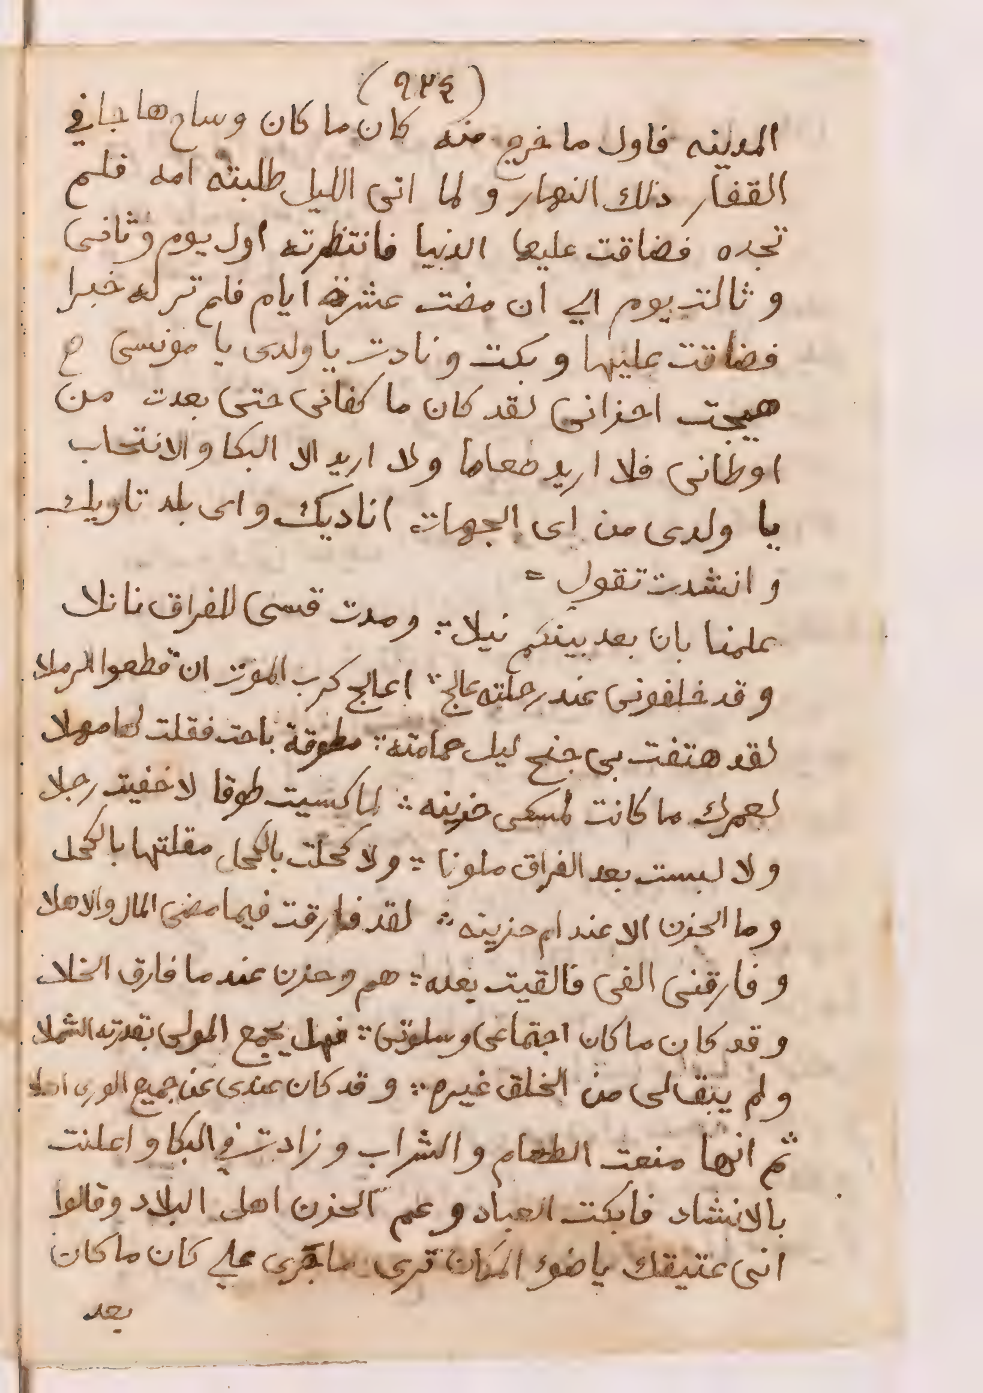 (٩٢٤)
المدينه فاول ما خرج منه كان ما كان وساح هاجا في
القفار ذلك النهار و لما اتى الليل طلبته امه فلم
تجده فضاقت عليها الدنيا فانتظرته اول يوم وثانى
و ثالث يوم الي ان مضت عشرة ايام فلم تر له خبرا
فضاقت عليها و بكت و نادت يا ولدى يا مونسى
هيجت احزانى لقد كان ما كفانى حتى بعدت من
اوطانى فلا اريد طعاما ولا اريد الا البكا والانتحاب
يا ولدى من اى الجهات اناديك واى بلد تاويك
و انشدت تقول =
علمنا بان بعد بينكم نبلا ؛ ومدت قسى للفراق نا نبلا
و قد خلفونى عند رحلته عالج ؛ اعالج كرب الموت ان قطعوا الرملا
لقد هتفت بى جنح ليل حمامته ؛ مطوقة باحت فقلت لها مهلا
لعمرك ما كانت لمسكى حزينه ؛ لما كسيت طوقا لا خفيت رجلا
ولا لبست بعد الفراق ملونا ؛ ولا كحلت بالكحل مقلتها بالكحل
وما الحزن الا عند ام حزينه ؛ لقد فارقت فيما مضى المال والاهلا
و فارقنى الفى فالقيت بعده ؛ هم وحزن عند ما فارق الخلا
و قد كان ما كان اجتماعى وسلوتى ؛ فهل يجمع المولى بقدرته الشملا
و لم يبقا لى من الخلق غيره ؛ و قد كان عندى عن جميع الورى اهلا
ثم انها منعت الطعام و الشراب و زادت في البكا و اعلنت
بالانشاد فابكت العباد و عم الحزن اهل البلاد وقالوا
انى عتيقك يا ضوء المكان ترى ما جرى علي كان ما كان
بعد